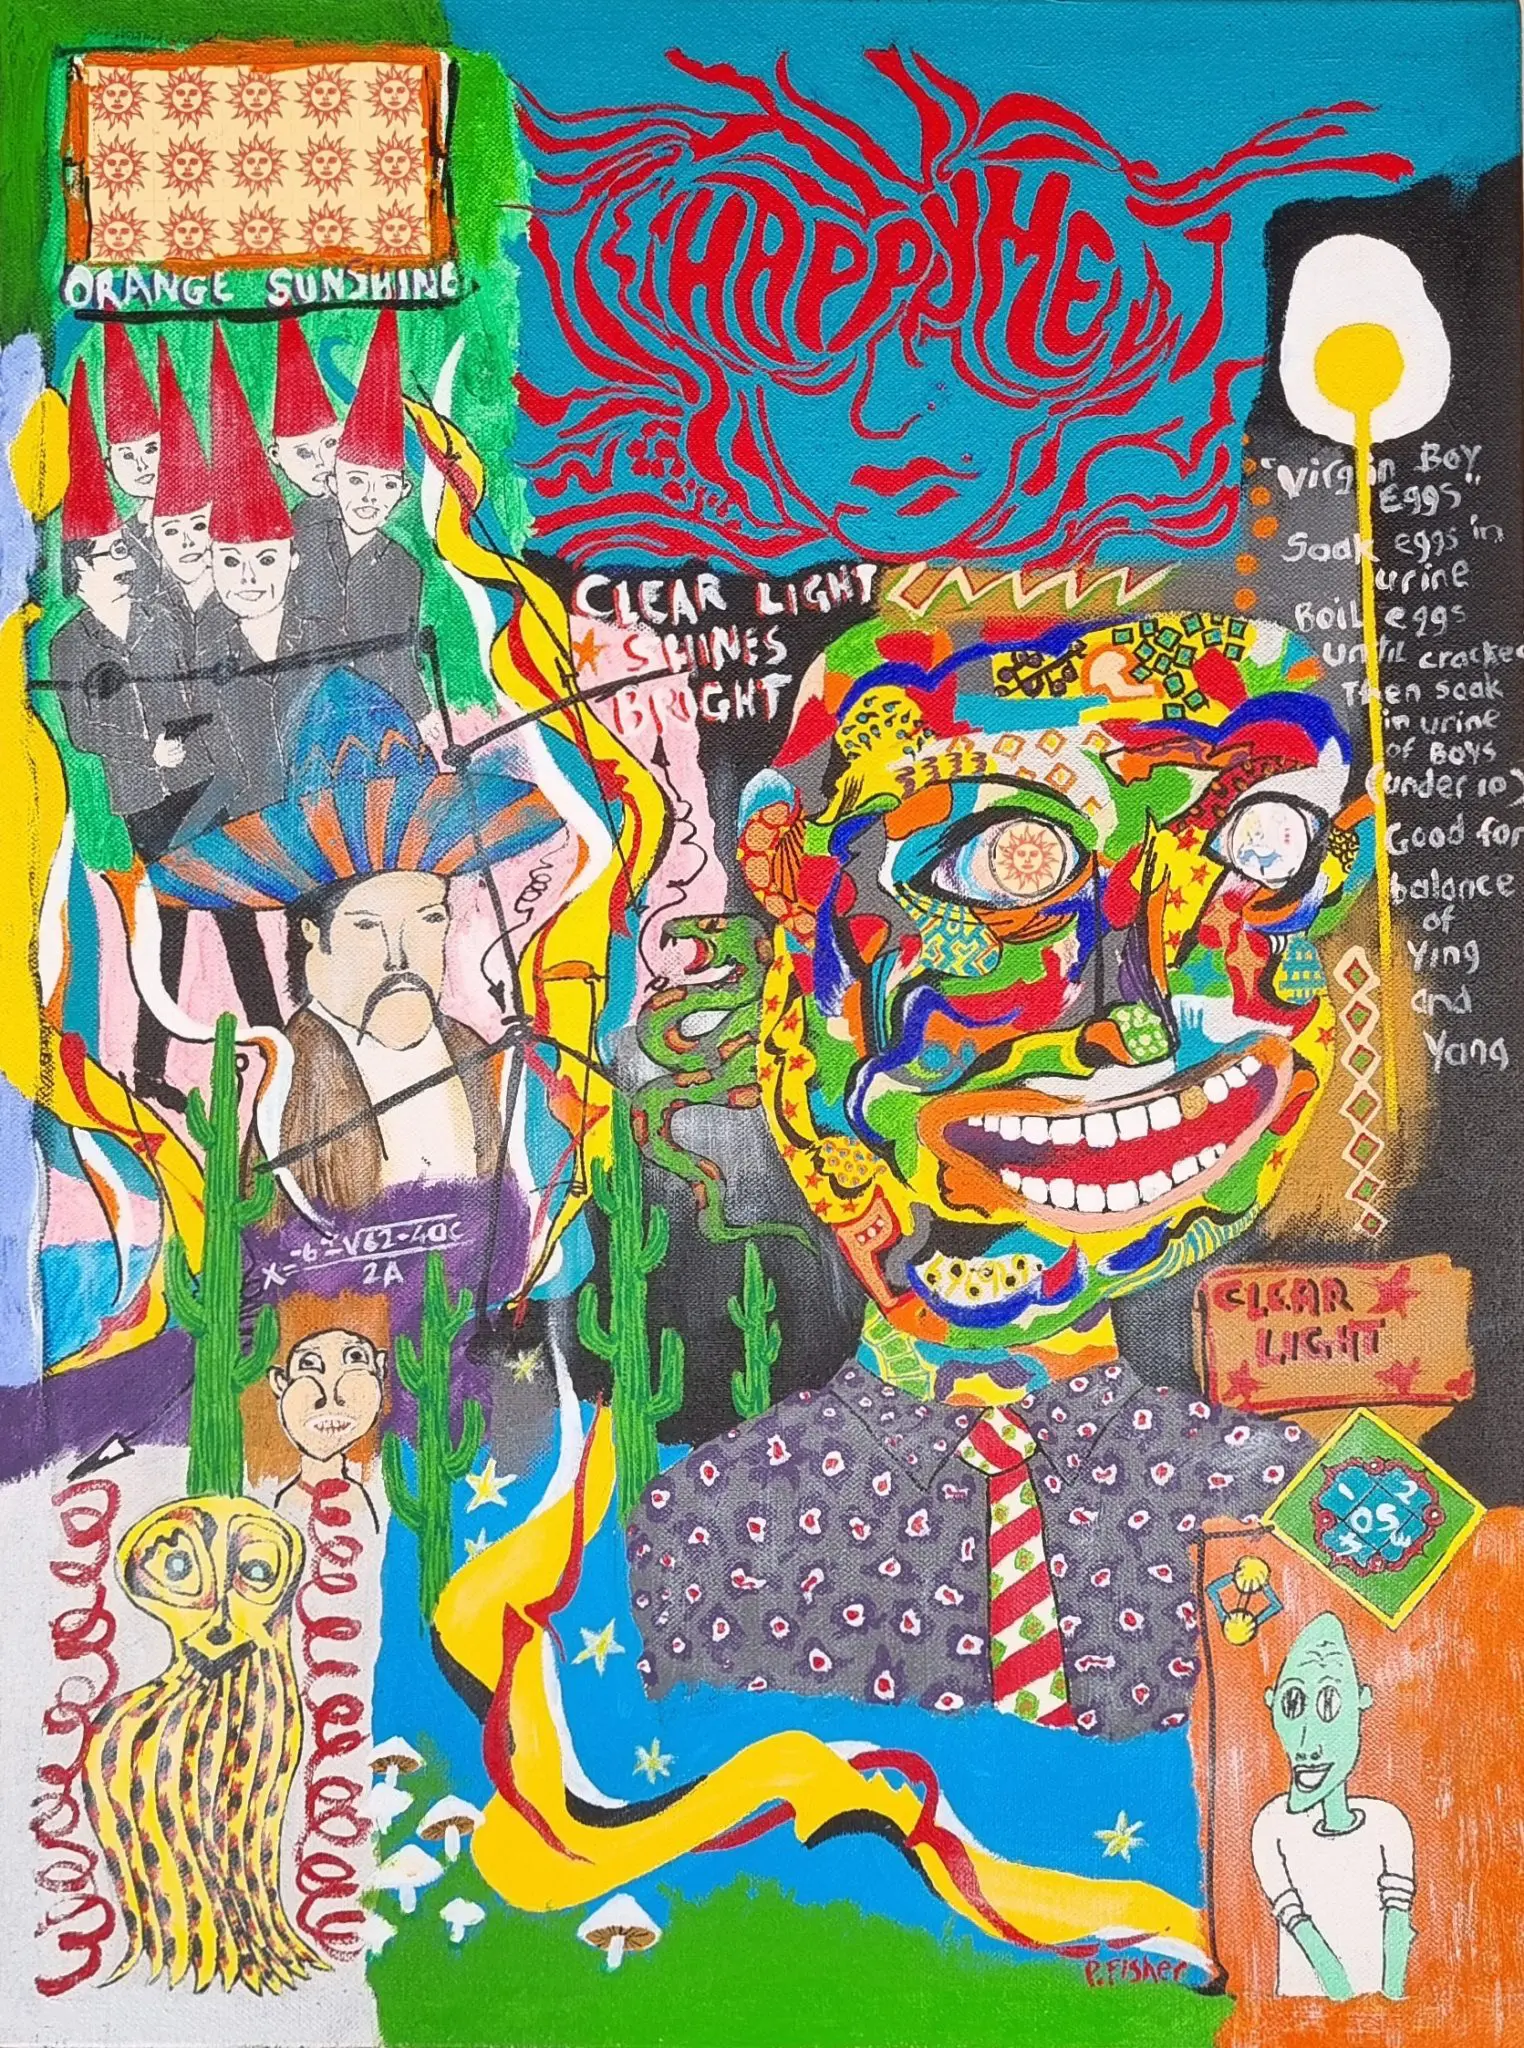 ORANGE SUNSHINE
HAPPYMENT
CLEAR LIGHT
SHINES
BRIGHT
"Virgin Boy
Eggs"
Soak eggs in
urine
Boil eggs
until cracked
Then soak
in urine
of Boys
(under 10)
Good for
balance
of
Ying
and
Yang
X=-6±√62-40C
2A
CLEAR
LIGHT
1 2
OS
3
P. Fisher